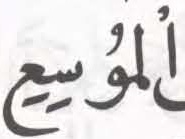 اَلْمُوسِيع